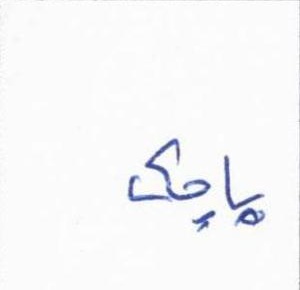 پاچک